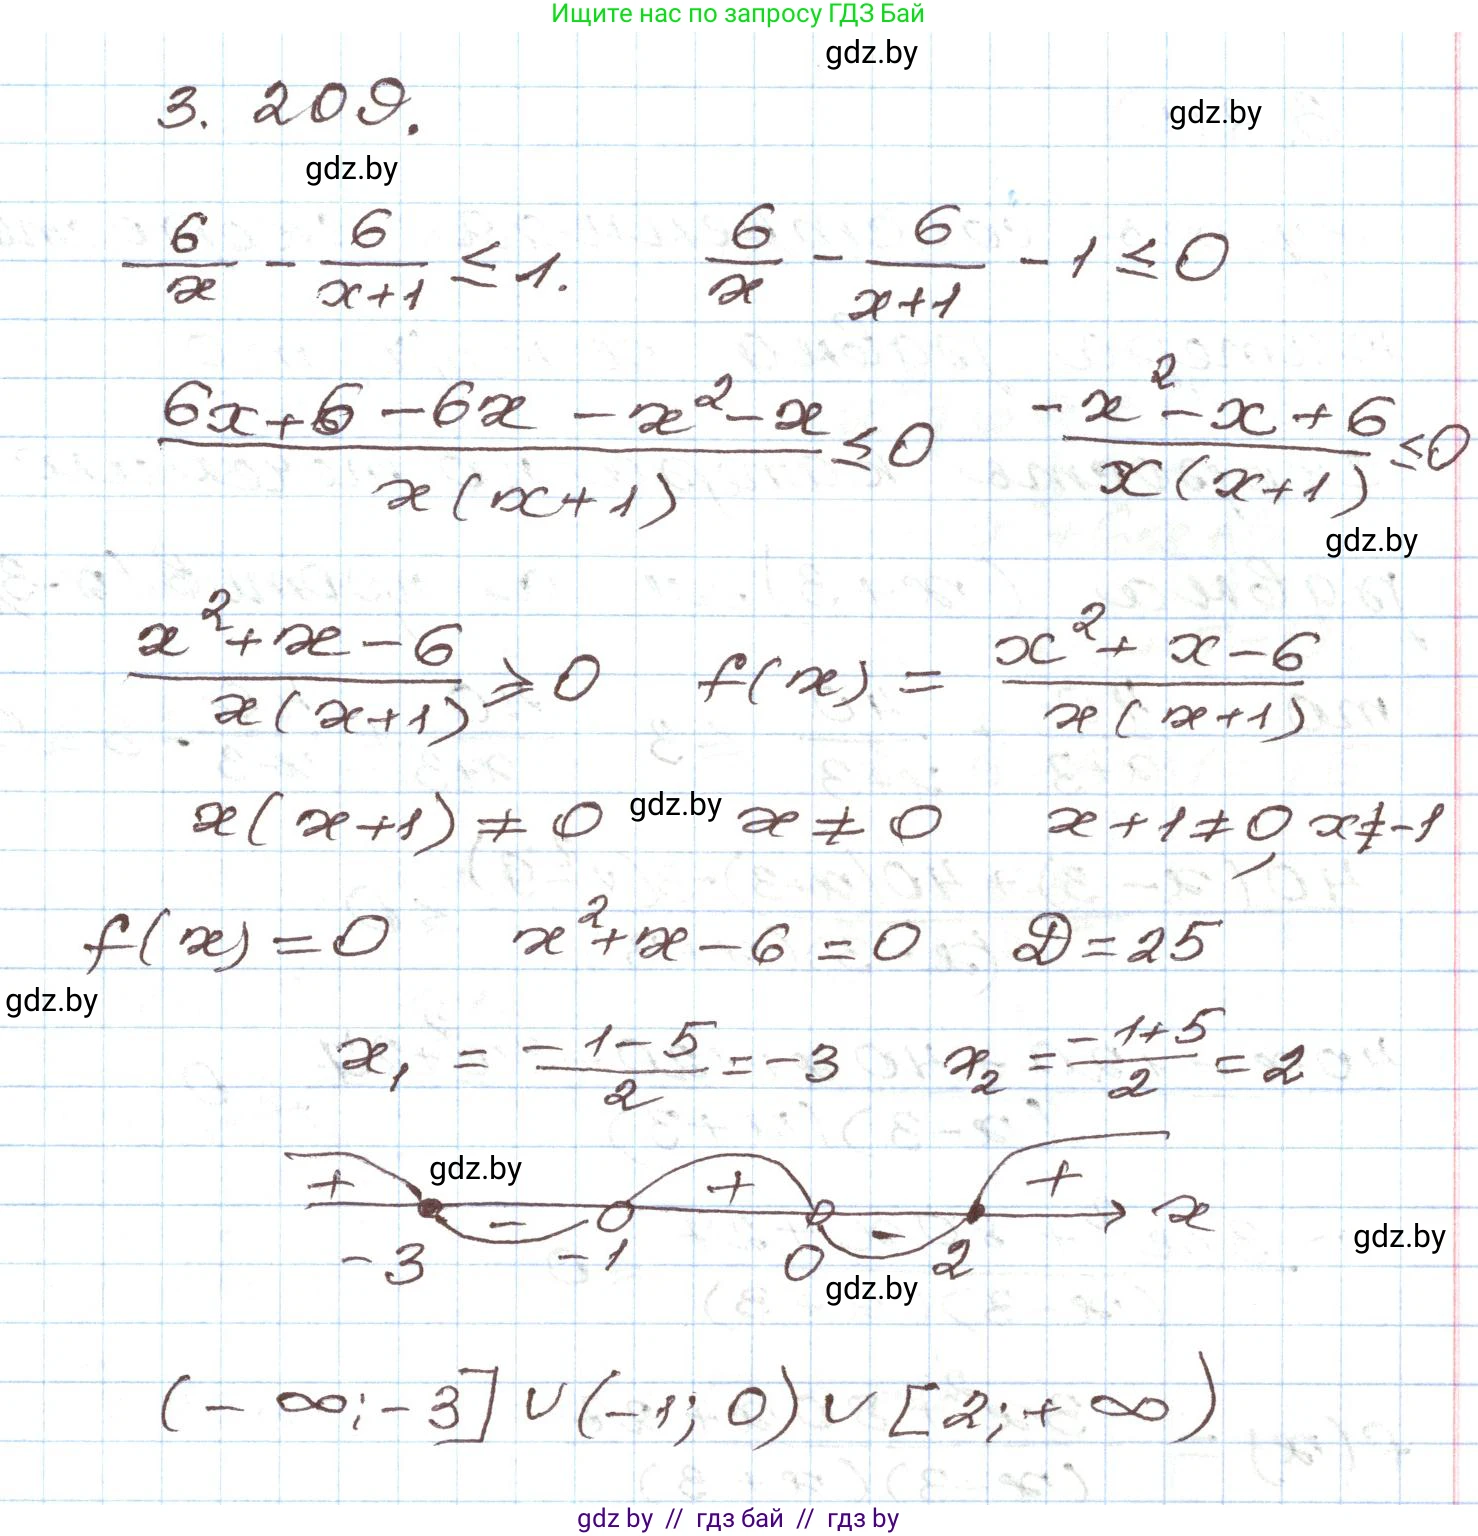 Ищите нас по запросу ГДЗ Бай
gdz.by
3. 209.
gdz.by
gdz.by
6/x - 6/(x+1) ≤ 1. 6/x - 6/(x+1) - 1 ≤ 0
(6x+6-6x-x²-x)/(x(x+1)) ≤ 0 (-x²-x+6)/(x(x+1)) ≤ 0
gdz.by
(x²+x-6)/(x(x+1)) ≥ 0 f(x) = (x²+x-6)/(x(x+1))
x(x+1) ≠ 0 gdz.by x ≠ 0 x+1 ≠ 0, x ≠ -1
f(x) = 0 x²+x-6 = 0 D = 25
gdz.by
x₁ = (-1-5)/2 = -3 x₂ = (-1+5)/2 = 2
gdz.by
+ - + - + x
gdz.by
-3 -1 0 2
gdz.by
(-∞; -3] ∪ (-1; 0) ∪ [2; +∞)
gdz.by // гдз бай // гдз by